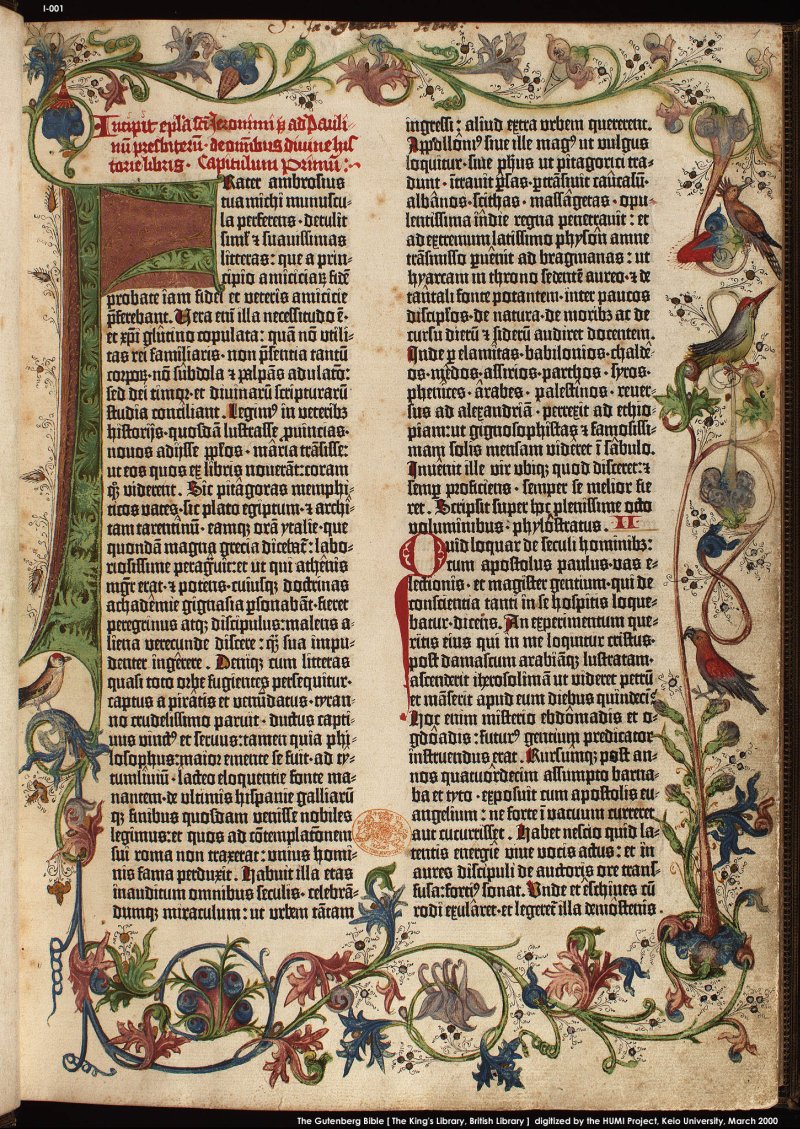 I-001
Incipit ep̄la sc̄i Jeronimi p̄b ad Pauli-
nū presbiterū · de omībus diuine his-
torie libris · Capitulum Primū:
Frater ambrosius
tua michi munuscu-
la perferens · detulit
siml' ⁊ suauissimas
litteras: que a prin-
cipio amiciciaꝝ fidē
probate iam fidei et veteris amicicie
p̄ferebant. Vera em̄ illa necessitudo ē·
et xp̄i glutino copulata: quā nō vtili-
tas rei familiaris· non p̄sentia tantū
corpoꝝ· nō subdola ⁊ palpans adulatō:
sed dei timor· et diuinaꝝ scripturarū
studia conciliant. Legimꝰ in veteribꝫ
historijs· quosdā lustrasse ꝓuincias·
nouos adijsse ppl'os· maria trāsisse:
ut eos quos eꝫ libris nouerāt: coram
qꝫ viderent. Sic pitagoras memphi-
ticos vates· sic plato egiptum· ⁊ archi-
tam tarentinū· eamqꝫ orā ytalie· que
quondā magna grecia dicebat̄: labo-
riosissime peragᵢuit: et ut qui athenis
mgr̄ erat· ⁊ potens· cuiusqꝫ doctrinas
achademie gignasia ꝑsonabāt· fieret
peregrinus atqꝫ discipulus: malens a-
liena verecunde discere: qꝫ̄ sua impu-
denter ingerere. Deniqꝫ cum litteras
quasi toto orbe fugientes persequitur·
captus a piratis et venūdatus· tyran-
no crudelissimo paruit· ductus capti-
uus vinctꝰ et seruus: tamen quia phi-
losophus: maior emente se fuit· ad ty-
tumliuiū· lacteo eloquentie fonte ma-
nantem· de vltimis hispanie galliarū
qꝫ finibus quosdam venisse nobiles
legimus: et quos ad cōtemplatōnem
sui roma non traxerat: vnius homi-
nis fama perduxit. Habuit illa etas
inauditum omnibus seculis· celebrā-
dumqꝫ miraculum: ut vrbem tātam
ingressi: aliud extra vrbem quererent.
Apollonꝰ siue ille magꝰ ut vulgus
loquitur· siue ph̄us ut pitagorici tra-
dunt· ītrauit ꝑsas· ꝑtrāsiuit caucasū·
albanos· scithas· massagetas· opu-
lentissima indie regna penetrauit: et
ad extremum latissimo physon amne
trāsmisso ꝑuenit ad bragmanas: ut
hyarcam in throno sedentē aureo· ⁊ de
tantali fonte potantem· inter paucos
discipl'os· de natura· de moribꝫ ac de
cursu dierū ⁊ siderū audiret docentem.
Inde ꝑ elamitas· babilonios· chalde-
os· medos· assirios· parthos· syros·
phenices· arabes· palestinos· reuer-
sus ad alexandriā· perrexit ad ethio-
piam: ut gignosophistas ⁊ famosissi-
mam solis mensam videret ī sabulo.
Inuenit ille vir vbiqꝫ quod disceret: ⁊
semꝑ proficiens· semper se melior fie-
ret. Scripsit super hoc plenissime octo
voluminibus· phylostratus. II
Quid loquar de seculi hominibꝫ:
cum apostolus paulus· vas e-
lectionis· et magister gentium· qui de
conscientia tanti in se hospitis loque-
batur· dicens. An experimentum que-
ritis eius qui in me loquitur cristus·
post damascum arabiāqꝫ lustratam·
ascenderit iherosolimā ut videret petrū
et māserit apud eum diebus quindecī·
Hoc enim misterio ebdomadis et o-
gdoadis: futurꝰ gentium predicator
instruendus erat. Rursumqꝫ post an-
nos quatuordecim assumpto barna-
ba et tyto· exposuit cum apostolis eu-
angelium: ne forte ī vacuum curreret
aut cucurrisset. Habet nescio quid la-
tentis energie viue vocis actus: et in
aures discipuli de auctoris ore trans-
fusa: fortiꝰ sonat. Unde et eschines cū
rodi exularet· et legeret̄ illa demostenis
The Gutenberg Bible [ The King's Library, British Library ] digitized by the HUMI Project, Keio University, March 2000